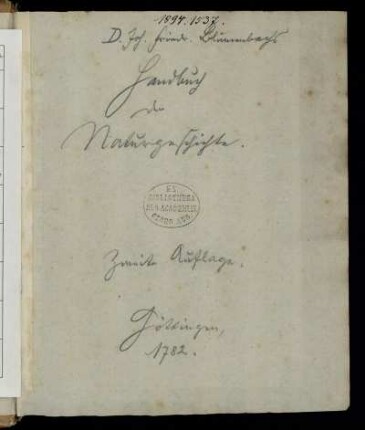 1894.1537.
D. Joh. Friedr. Blumenbachs
Handbuch
der
Naturgeschichte.
EX
BIBLIOTHECA
Zweite Auflage.
Göttingen,
1782.